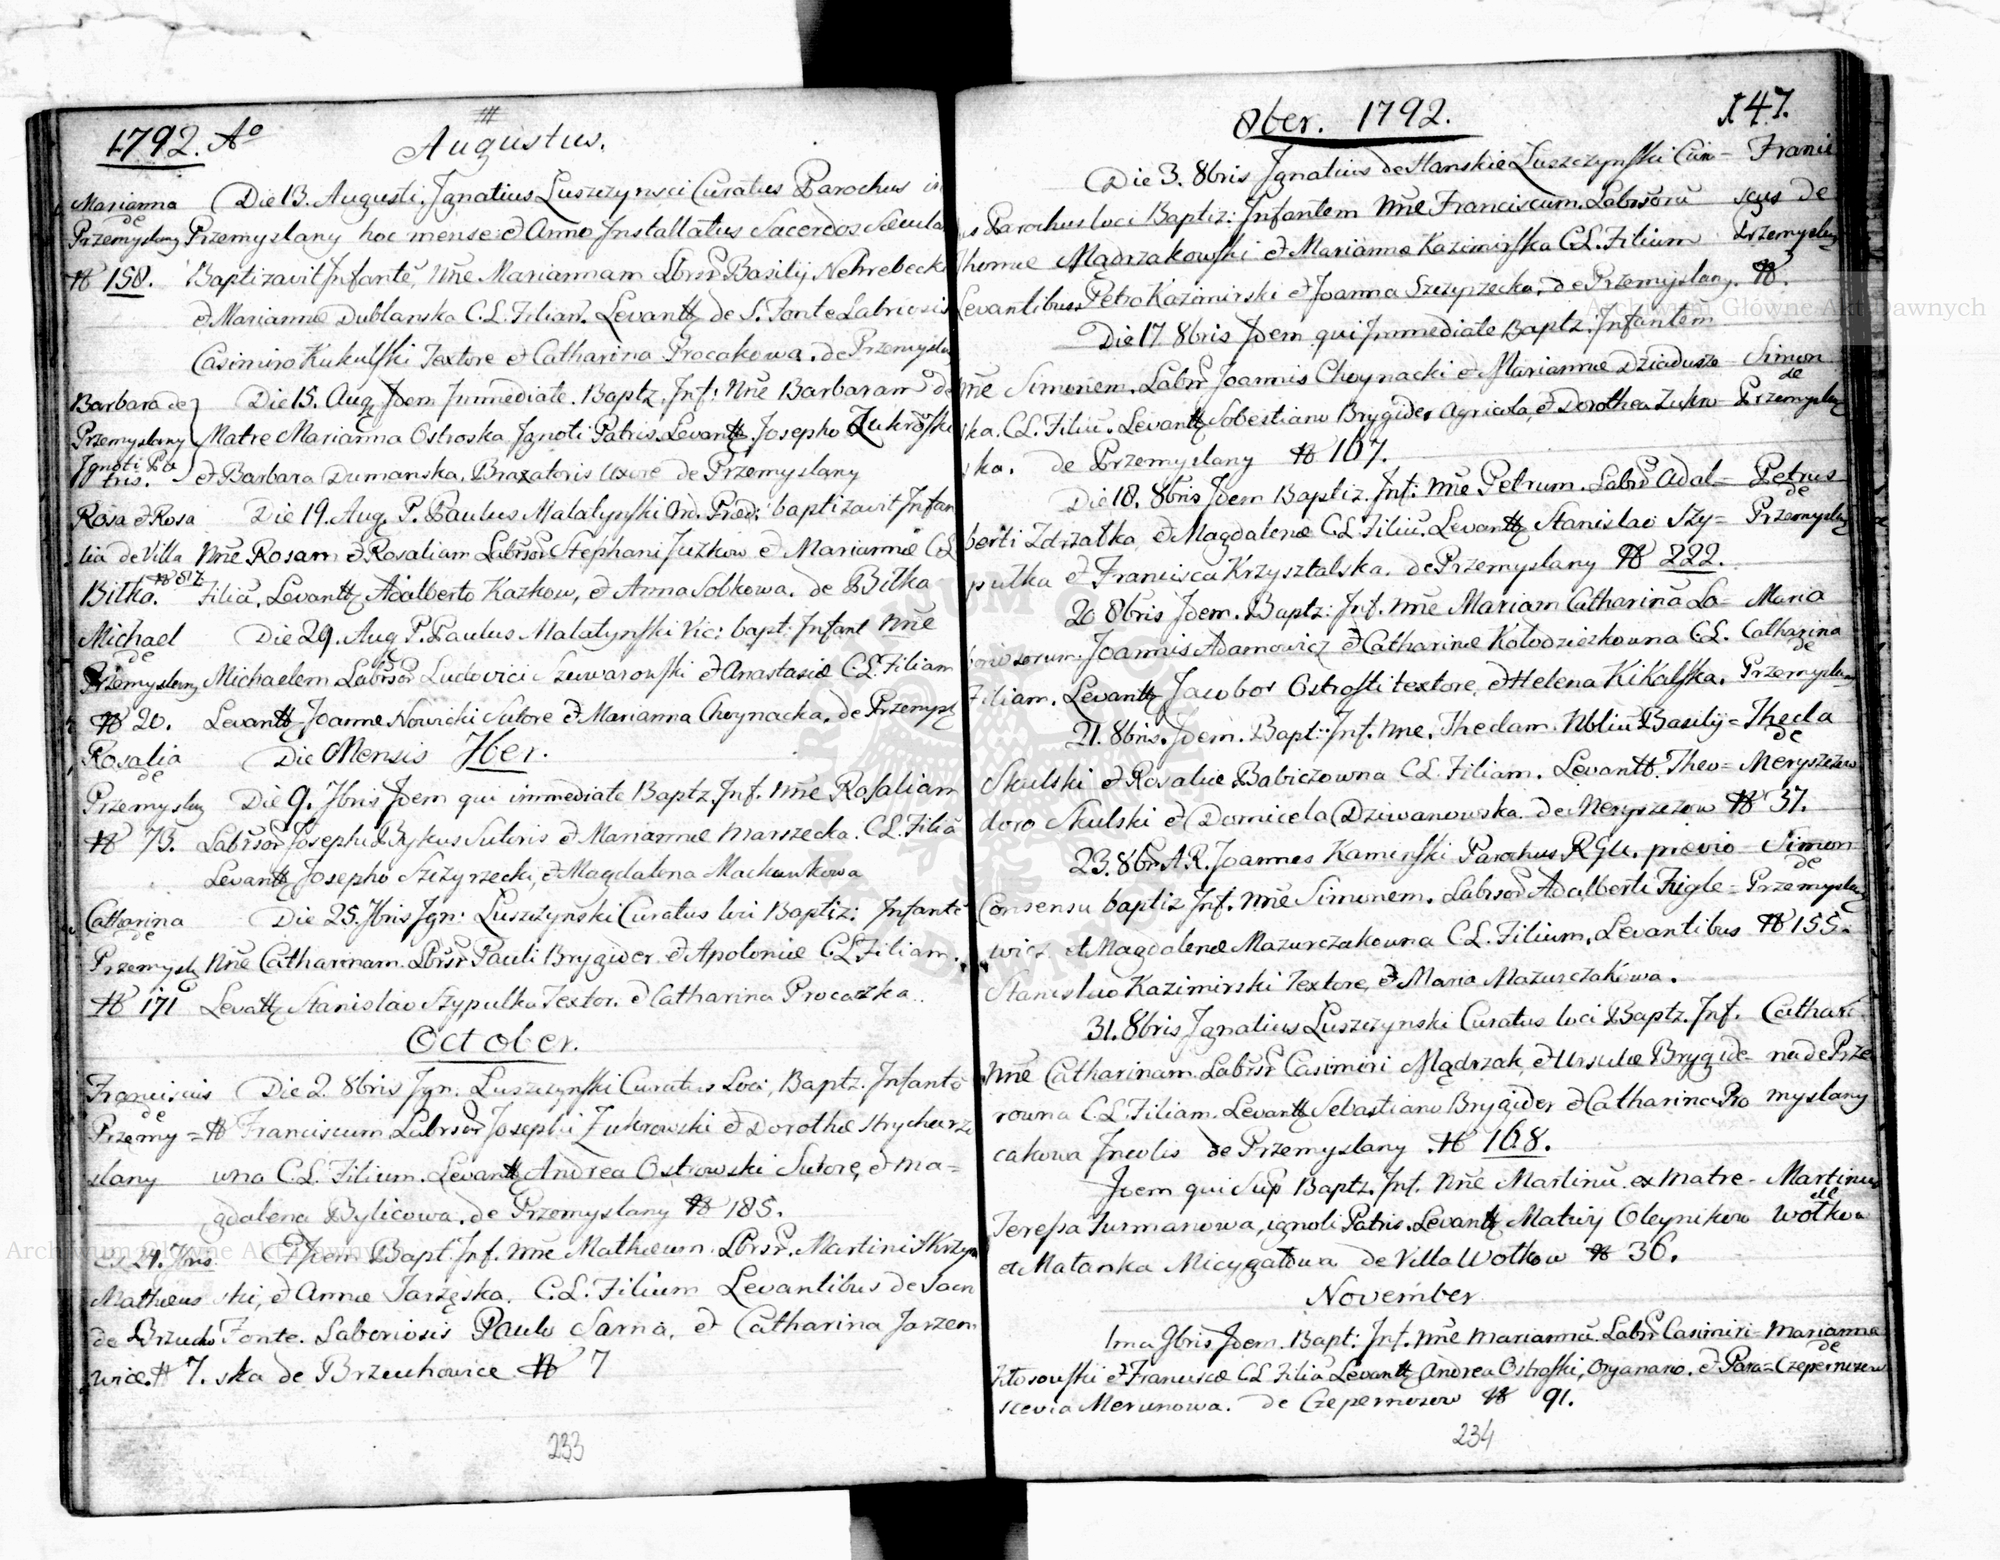 1792. Ao
Augustus.
Marianna de Przemyslany № 158.
Die 13. Augusti. Ignatius Luszczynsci Curatus Parochus in
Przemyslany hoc mense et Anno Installatus Sacerdos Secula
Baptizavit Infantē, nñe Mariannam Lbrsr Basilij Nehrebeck
et Mariannæ Dublanska C.L. Filiam. Levantt de S. Fonte Labriosis
Casimiro Kukulski Textore et Catharina Procakowa. de Przemyslan
Barbara de Przemyslany Ignoti Patris.
Die 15. Aug Idem Immediate. Baptz. Inf: Nñe Barbaram de
Matre Marianna Ostroska Ignoti Patris. Levantt. Josepho Zukrofski
et Barbara Dumanska, Braxatoris Uxore de Przemyslany
Rosa et Rosalia de Villa Bitka. № 57
Die 19. Aug. P. Paulus Malatynski Ord. Præd: baptizavit Infan
Nñe Rosam et Rosaliam Labrsor Stephani Juzkow et Mariannæ CL
Filiā, Levantt Adalberto Kazkow, et Anna Sobkowa. de Bitka
Michael de Przemyslany № 20.
Die 29. Aug P. Paulus Malatynski Vic: bapt: Infant Nñe
Michaelem Labrsor Ludovici Szuwarowski et Anastasiæ C.L. Filiam
Levantt Joanne Nowicki Sutore et Marianna Choynacka, de Przemysl
Die Mensis 7ber.
Rosalia de Przemyslny № 73.
Die 9. 7bris Idem qui immediate Baptz. Inf. Nñe Rosaliam
Labrsor Josephi Bykus Sutoris et Mariannæ Marszecka. C.L. Filiā
Levantt Josepho Szczyrzecki, et Magdalena Mackuskowa
Catharina de Przemysly № 171
Die 25. 7bris Ign: Luszczynski Curatus loci Baptiz: Infantē
Nñe Catharinam Lbrsr Pauli Brygider et Apoloniæ C.L. Filiam.
Levatt Stanislao Szypulka Textor. et Catharina Procaszka.
October.
Franciscus de Przemyslany
Die 2. 8bris Ign. Luszczynski Curatus Loci, Baptz. Infantē
№ Franciscum Labrsor Josephi Zukrowski et Dorothæ Strycharz
una C.L. Filium. Levantt Andrea Ostrowski Sutore, et Ma=
gdalena Bylicowa. de Przemyslany № 185.
21. 7bris Matheus de Brzuchowice. № 7.
Idem Bapt. Inf. Nñe Mathæum. Lbrsr. Martini Skrzyn
ski, et Annæ Jarzęska. C.L. Filium Levantibus de Sacr
Fonte. Laboriosis Paulo Sarna, et Catharina Jarzem
ska de Brzuchowice № 7
233
8ber. 1792.
147.
Die 3. 8bris Ignatius de Stanskie Luszczynski Cur= Franci
s Parochus loci Baptiz: Infantem Nñe Franciscum. Labrsorū scus de
Thomæ Mądrzakowski et Mariannæ Kazimirska C.L. Filium Przemyslny
Levantibus Petro Kazimirski et Joanna Szczyrzecka, de Przemyslany. №.
Die 17. 8bris Idem qui Immediate Baptz. Infantem
Nñe Simonem. Labrsr Joannis Choynacki et Mariannæ Dziadusze= Simon
ska. C.L. Filiū. Levantt Sobestiano Brygider Agricola, et Dorothea Zukro= de Przemyslny
ska. de Przemyslany № 107.
Die 18. 8bris Idem Baptiz. Inf: Nñe Petrum. Labrsr Adal= Petrus
berti Zdrzałka, et Magdalenæ C.L. Filiū. Levantt Stanislao Szy= de Przemyslny
pułka et Francisca Krzysztalska. de Przemyslany № 222.
20 8bris Idem. Baptz: Inf. Nñe Mariam Catharinā La= Maria
boriosorum. Joannis Adamowicz et Catharinæ Kołodzieżkowna C.L. Catharina
Filiam. Levantt Jacobo Ostrofski textore, et Helena Kikalska. de Przemyslany
21. 8bris. Idem. Bapt: Inf. Nñe. Theclam. Nbliū Basilij= Thecla
Skulski et Rosaliæ Babiczowna C.L. Filiam. Levantt. Theo= de Meryszczow
doro Skulski et Domicela Dziwanowska. de Meryszczow № 37.
23. 8bris A.R. Joannes Kaminski Parochus RGU. prævio Simon
Consensu baptiz Inf. Nñe Simonem. Labrsor Adalberti Figle= de Przemyslny
wicz et Magdalenæ Mazurczakowna C.L. Filium, Levantibus № 155.
Stanislao Kazimirski Textore, et Maria Mazurczakowa.
31. 8bris Ignatius Luszczynski Curatus loci Baptz. Inf. Cathari
Nñe Catharinam Labrsr Casimiri Mądrzak, et Ursulæ Brygide= na de Prze
rowna C.L. Filiam. Levantt Sebastiano Brygider et Catharina Pro myslany
cakowa Incolis de Przemyslany. № 168.
Idem qui Sup Baptz. Inf. Nñe Martinū ex Matre Martinus
Teressa Furmanowa, ignoti Patris. Levantt Matwij Oleynikow de Wołkow
et Matanka Micygałowa de Villa Wołkow № 36.
November
1ma 9bris Idem. Bapt: Inf. Nñe Mariannā. Labrsr Casimiri= Marianna
Kłosowski et Franciscæ C.L. Filiā Levantt Andrea Ostrofski, Organario. et Para= de Czepernosow
scevia Merunowa. de Czepernosow № 91.
234